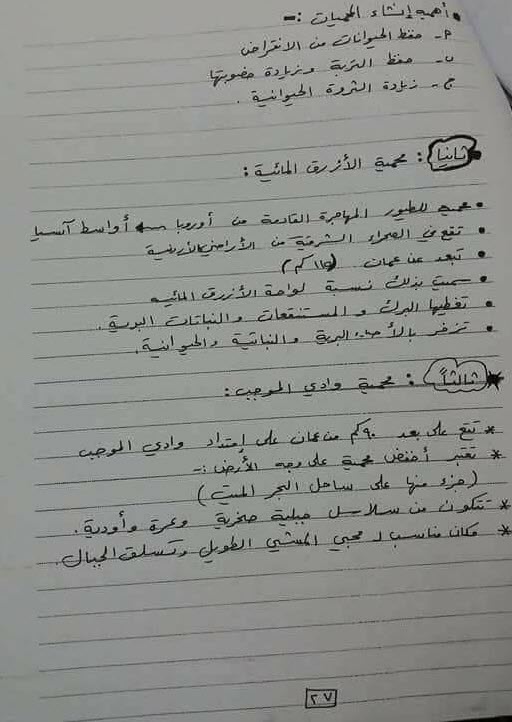 • أهمية إنشاء المحميات :-
أ- حفظ الحيوانات من الانقراض
ب- حفظ التربة وزيادة خصوبتها
ج- زيادة الثروة الحيوانية .
ثانيا : محمية الأزرق المائية :
• محمية للطيور المهاجرة القادمة من أوروبا ← أواسط آسيا
• تقع في الصحراء الشرقية من الأراضي الأردنية
• تبعد عن عمان (١١٥ كم)
• سميت بذلك نسبة لواحة الأزرق المائيه
• تغطيها البرك و المستنقعات والنباتات البرية .
• تزخر بالأحياء البرية والنباتية والحيوانية .
ثالثاً : محمية وادي الموجب :
* تقع على بعد ٩٠ كم من عمان على إمتداد وادي الموجب
* تعتبر أخفض محمية على وجه الأرض :-
(جزء منها على ساحل البحر الميت)
* تتكون من سلاسل جبلية صخرية وعرة وأودية .
* مكان مناسب لـ محبي المشي الطويل وتسلق الجبال .
٢٧